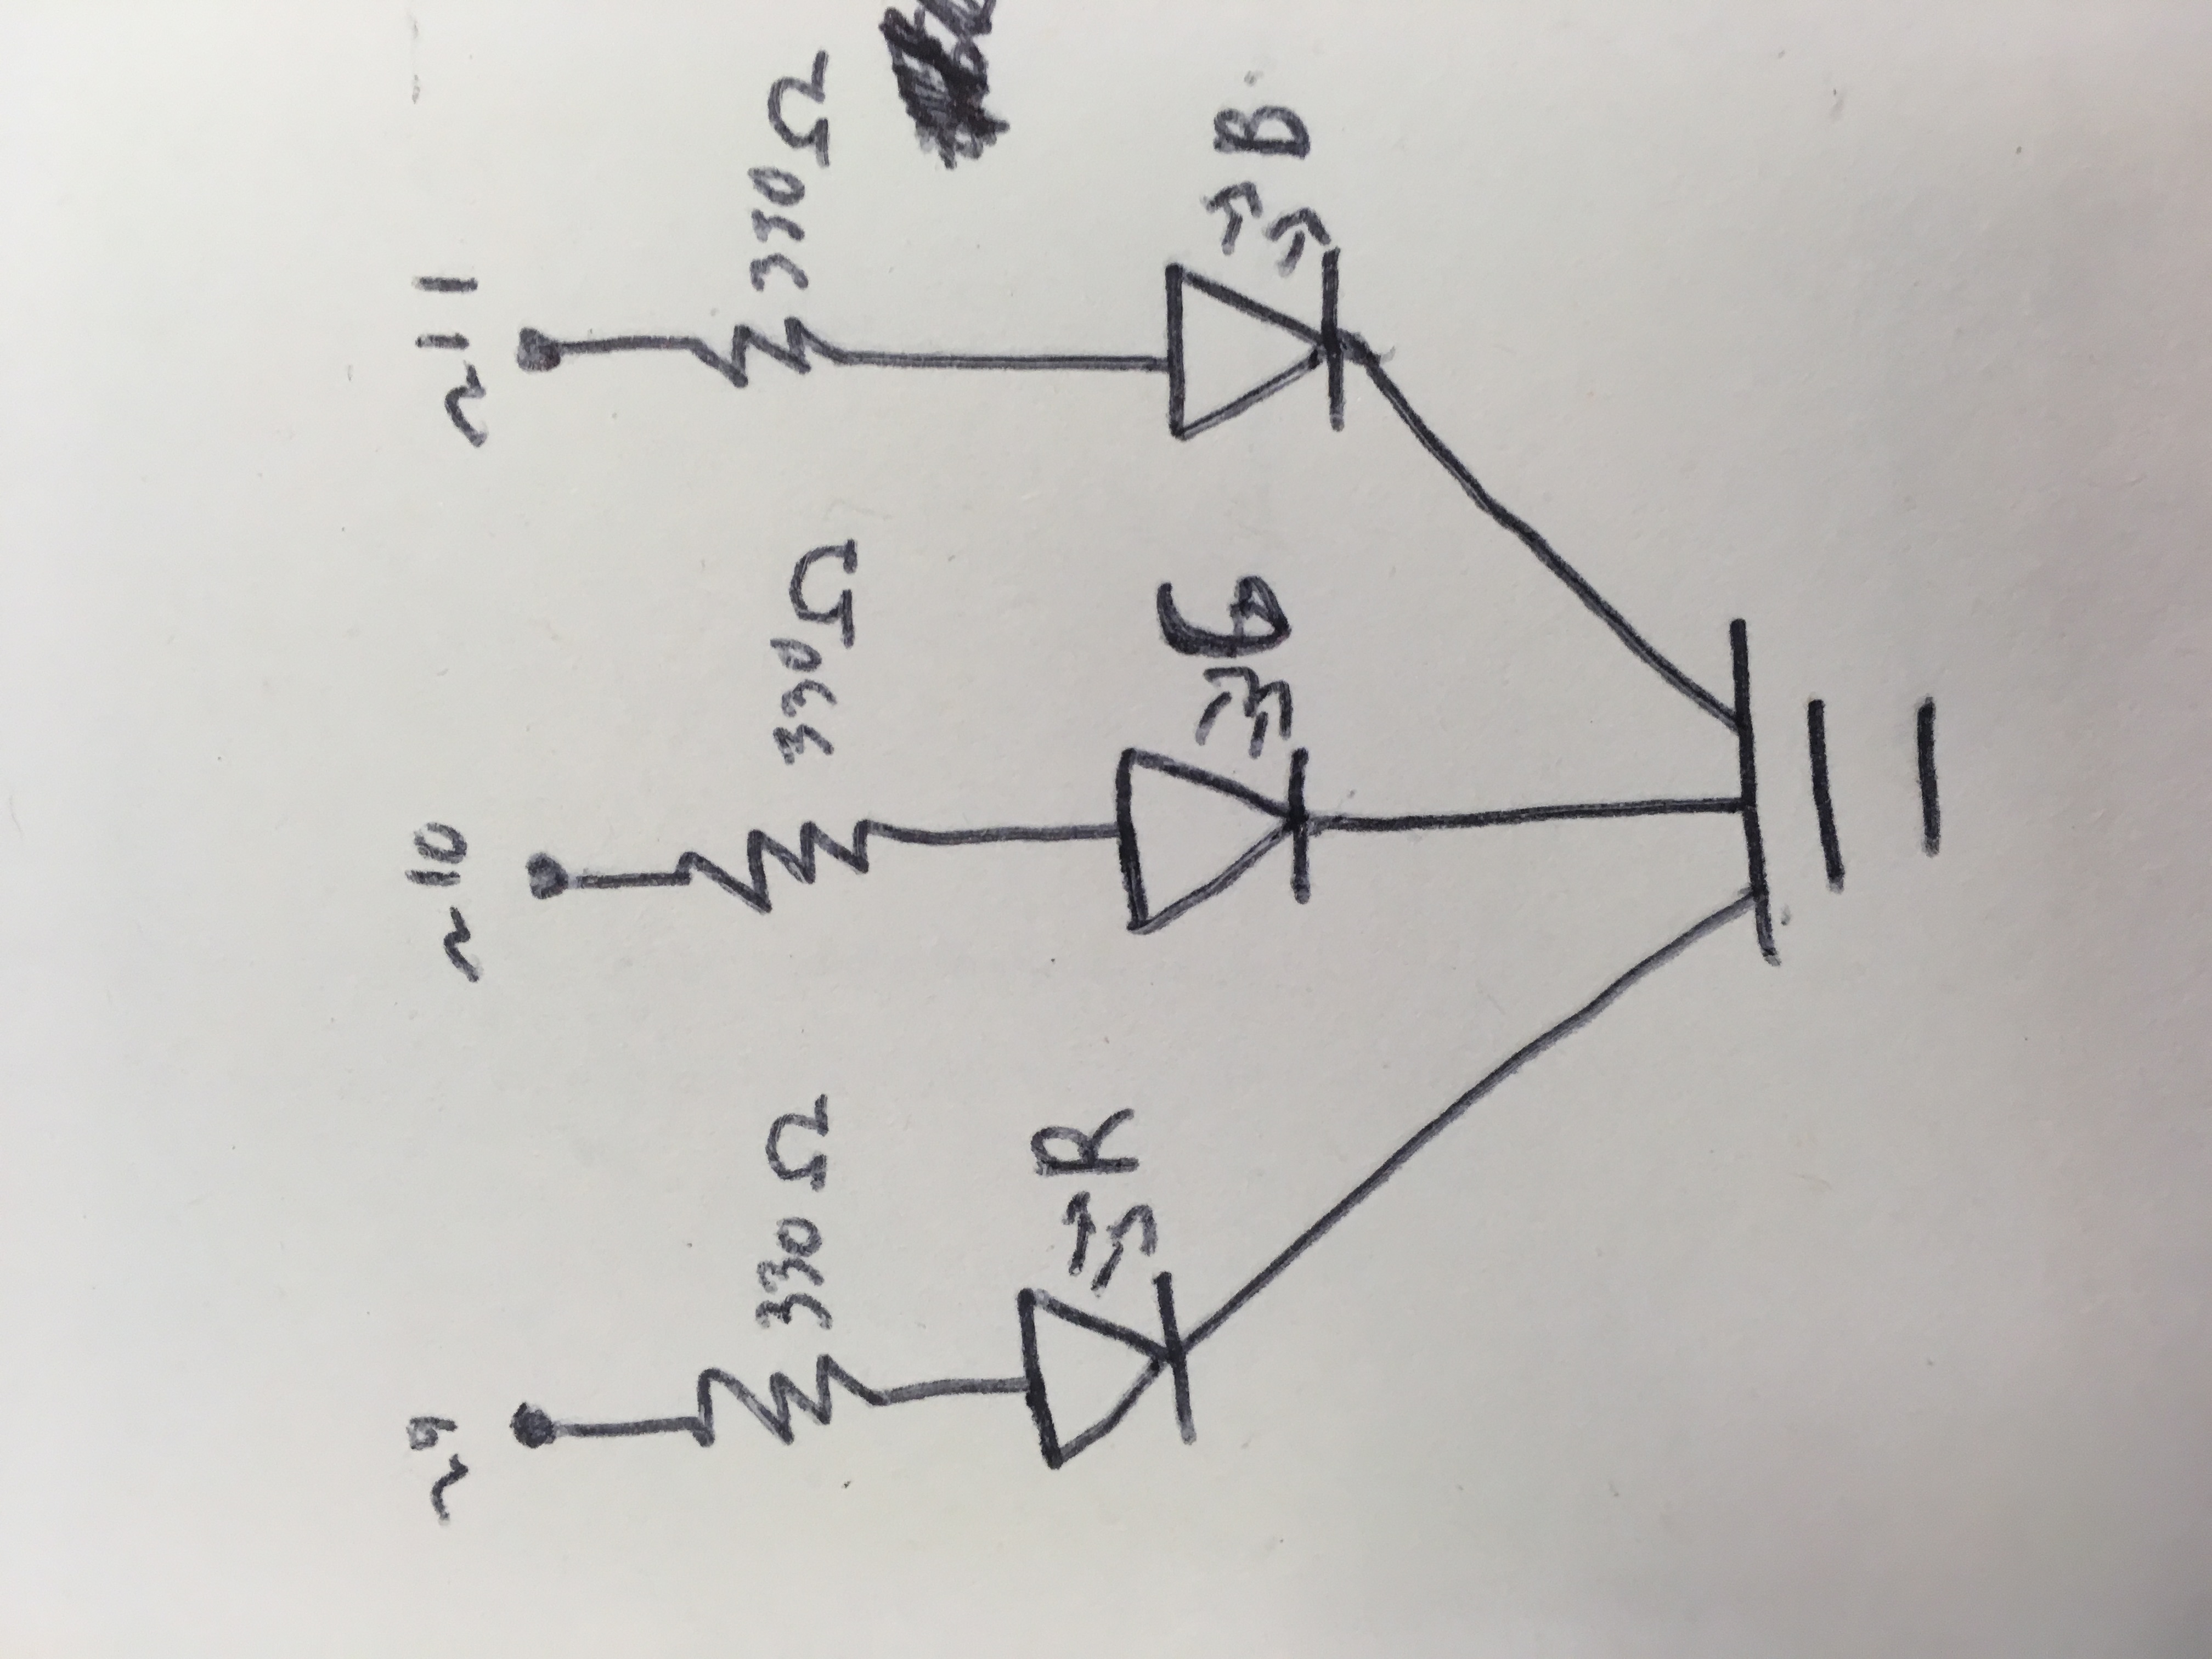 ~9 ~10 ~11
330Ω 330Ω 330Ω
R
G
B